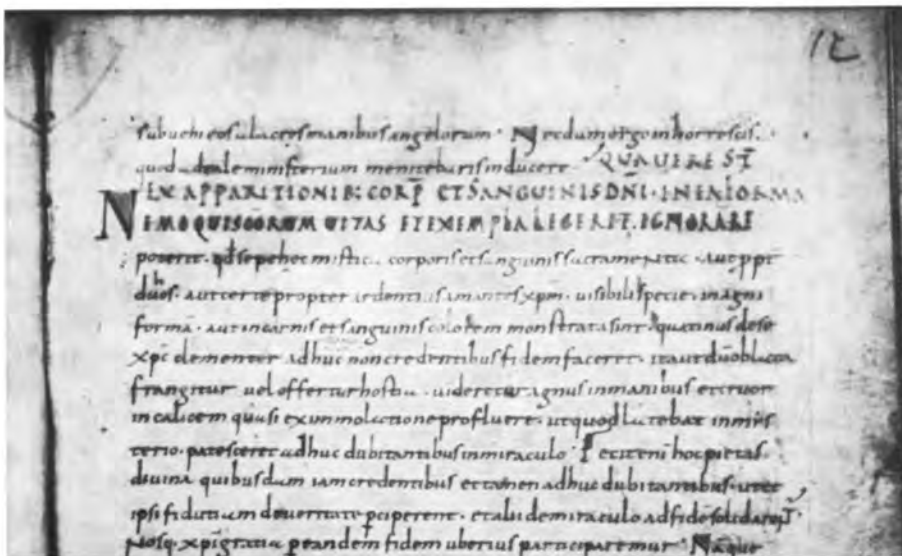 12
subuehi eos ulacres manibus angelorum · Necdum ergo inhorrescis ·
quod ministerium mentebaris inducere QUA UERE ST
EX APPARITIONIB; CORP ET SANGUINIS DNI · IN FORMA
NEMO QUI SCORUM UITAS ET EXEMPLA LEGERIT, IGNORARE
poterit · qd sepe hec mistica corporis et sanguinis sacramenta · aut ppt
dubios · aut certe propter ardentius amantes xpm · uisibili specie · in agni
forma · aut in carnis et sanguinis colorem monstrata sint · quatinus de se
xpc clementer adhuc non credentibus fidem faceret · ita ut dū oblata
frangitur uel offertur hostia · uideretur agnus in manibus et cruor
in calicem quasi ex inmolatione profluere · ut quod latebat in mis
terio · patesceret adhuc dubitantibus in miraculo · Fecit eni hoc pietas
diuina quibusdam iam credentibus et tamen adhuc dubitantibus · ut et
ipsi fidutiam de ueritate pciperent · et alii de miraculo ad fidē
Nosq · xpi gratia p eandem fidem uberius participaremur · Namque